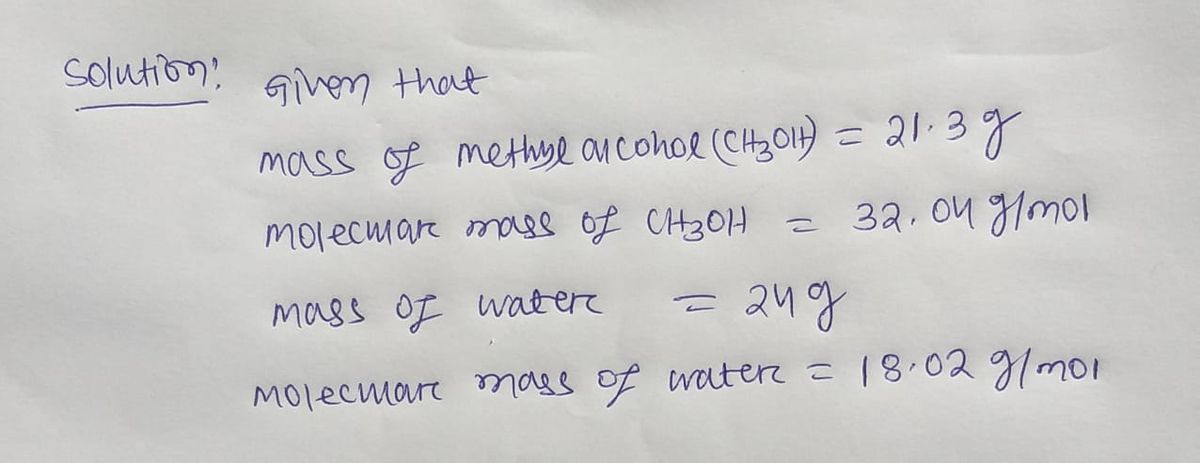 Solution: Given that
mass of methyl alcohol (CH3OH) = 21.3 g
molecular mass of CH3OH = 32.04 g/mol
mass of water = 24 g
Molecular mass of water = 18.02 g/mol